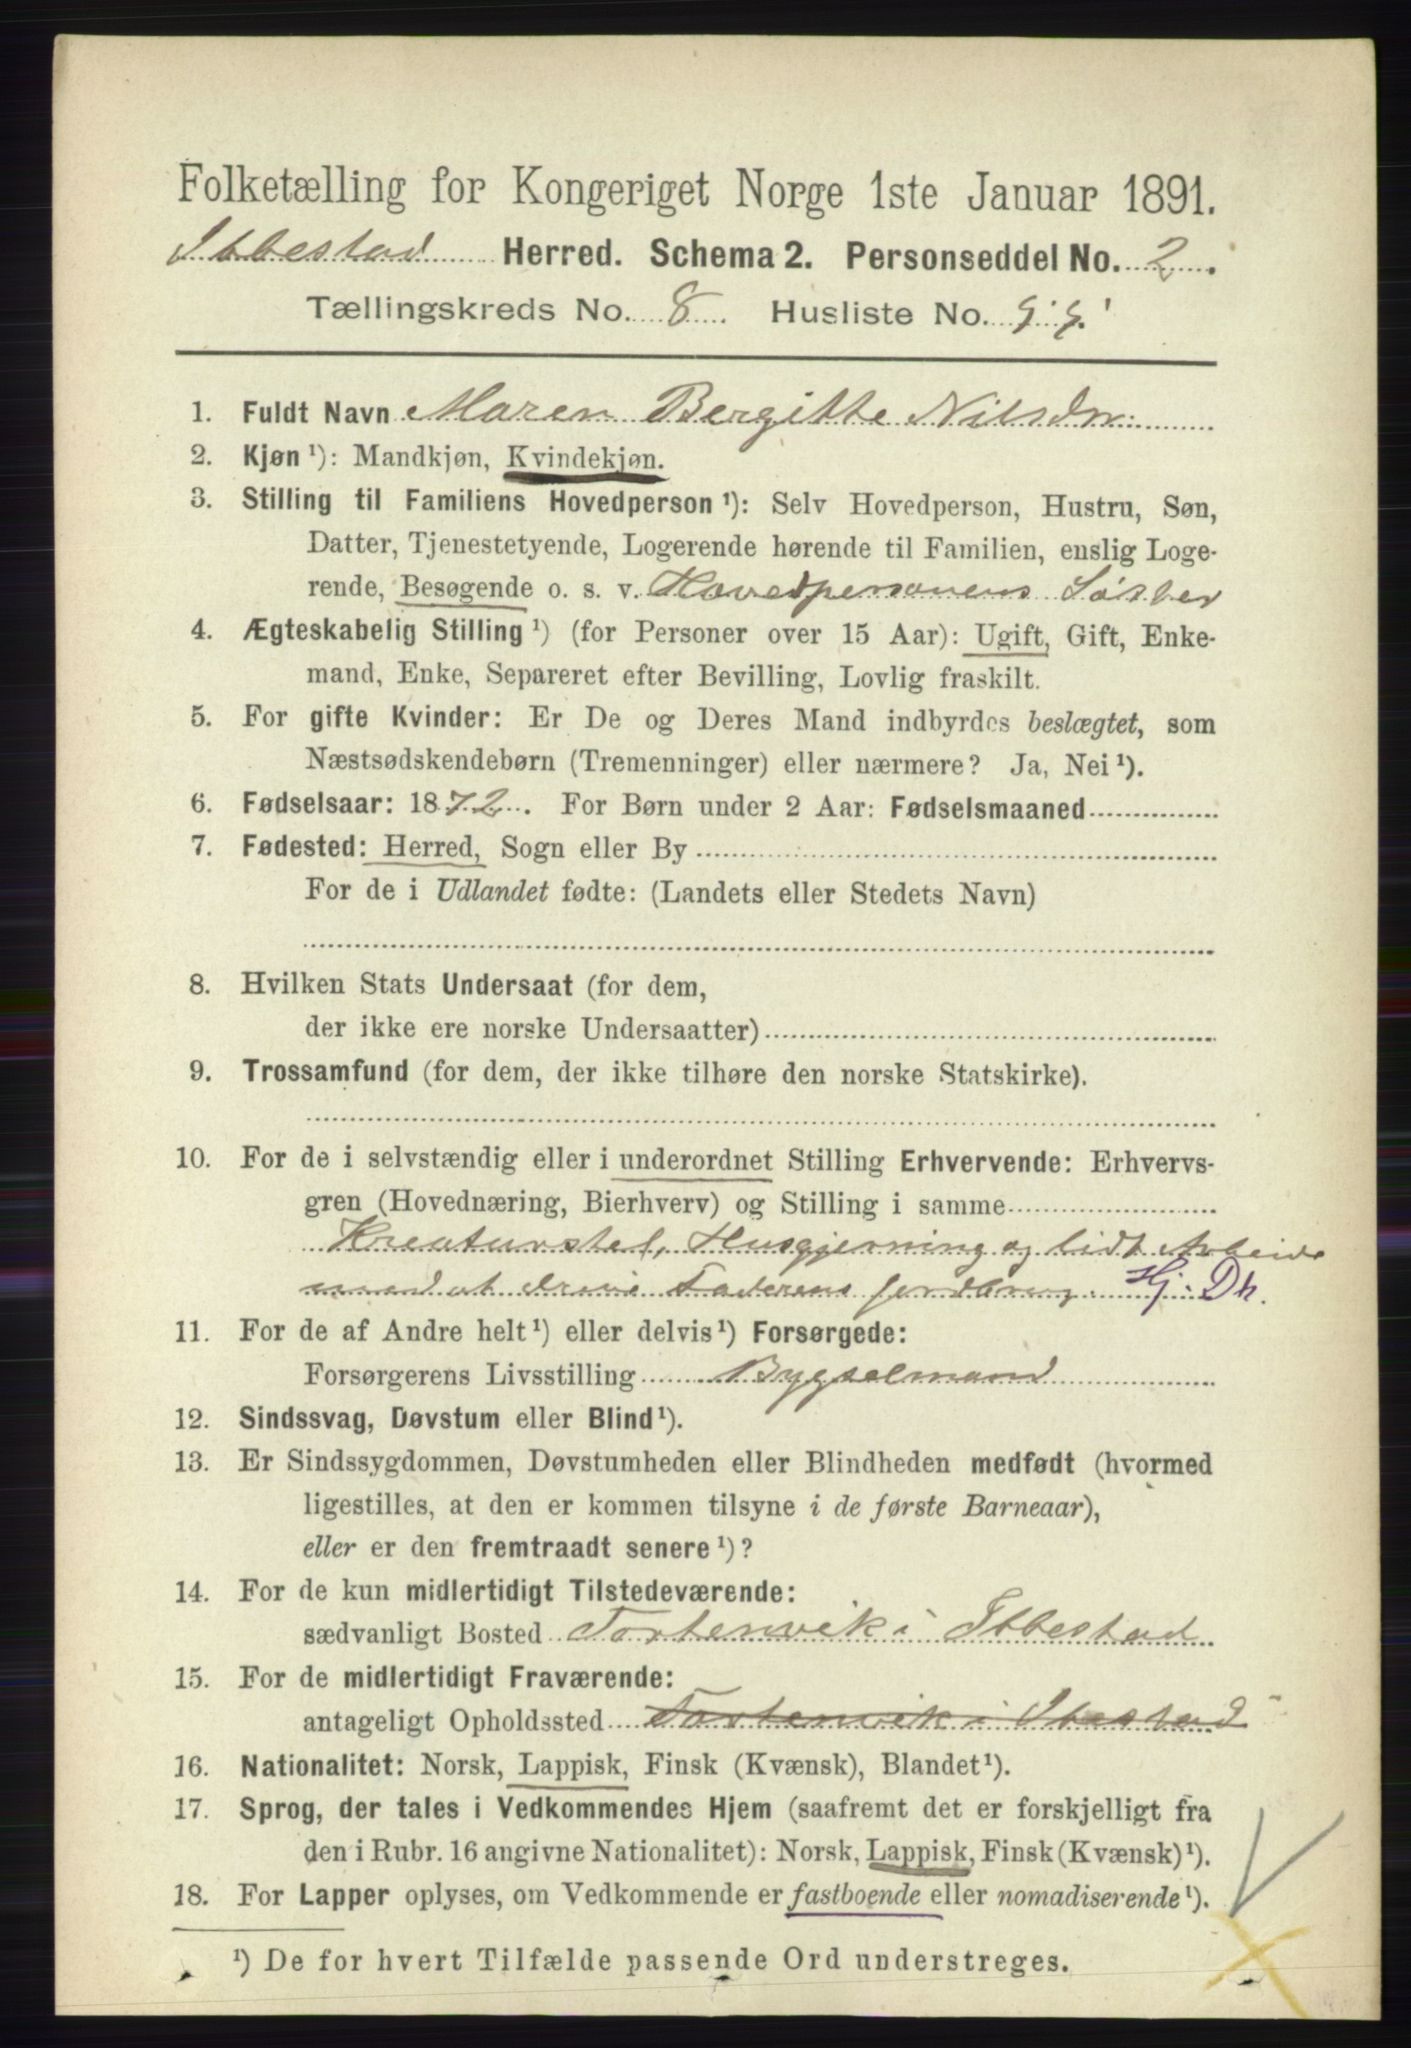 Folketælling for Kongeriget Norge 1ste Januar 1891.
Ibbestad Herred. Schema 2. Personseddel No. 2.
Tællingskreds No. 8 Husliste No.
1. Fuldt Navn Maren Bergitte Nilsdr.
2. Kjøn ¹): Mandkjøn, Kvindekjøn.
3. Stilling til Familiens Hovedperson ¹): Selv Hovedperson, Hustru, Søn,
Datter, Tjenestetyende, Logerende hørende til Familien, enslig Loge-
rende, Besøgende o. s. v. Hovedpersonens Søster
4. Ægteskabelig Stilling ¹) (for Personer over 15 Aar): Ugift, Gift, Enke-
mand, Enke, Separeret efter Bevilling, Lovlig fraskilt.
5. For gifte Kvinder: Er De og Deres Mand indbyrdes beslægtet, som
Næstsødskendebørn (Tremenninger) eller nærmere? Ja, Nei ¹).
6. Fødselsaar: 1872. For Børn under 2 Aar: Fødselsmaaned
7. Fødested: Herred, Sogn eller By
For de i Udlandet fødte: (Landets eller Stedets Navn)
8. Hvilken Stats Undersaat (for dem,
der ikke ere norske Undersaatter)
9. Trossamfund (for dem, der ikke tilhøre den norske Statskirke).
10. For de i selvstændig eller i underordnet Stilling Erhvervende: Erhvervs-
gren (Hovednæring, Bierhverv) og Stilling i samme
Kreaturstel, Husgjerning og lidt Arbeide
med at drive Faderens jordbrug. Hj. Dh.
11. For de af Andre helt ¹) eller delvis ¹) Forsørgede:
Forsørgerens Livsstilling Bygselmand
12. Sindssvag, Døvstum eller Blind ¹).
13. Er Sindssygdommen, Døvstumheden eller Blindheden medfødt (hvormed
ligestilles, at den er kommen tilsyne i de første Barneaar),
eller er den fremtraadt senere ¹)?
14. For de kun midlertidigt Tilstedeværende:
sædvanligt Bosted Tortenvik i Ibbestad
15. For de midlertidigt Fraværende:
antageligt Opholdssted Tortenvik i Ibestad
16. Nationalitet: Norsk, Lappisk, Finsk (Kvænsk), Blandet ¹).
17. Sprog, der tales i Vedkommendes Hjem (saafremt det er forskjelligt fra
den i Rubr. 16 angivne Nationalitet): Norsk, Lappisk, Finsk (Kvænsk) ¹).
18. For Lapper oplyses, om Vedkommende er fastboende eller nomadiserende ¹).
¹) De for hvert Tilfælde passende Ord understreges.